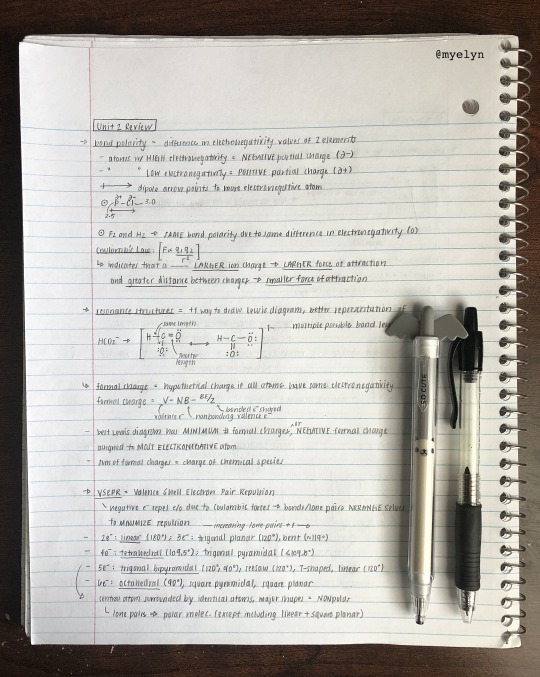 @myelyn
Unit 2 Review
→ bond polarity = difference in electronegativity values of 2 elements
- atoms w/ HIGH electronegativity = NEGATIVE partial charge (∂-)
- " " LOW electronegativity = POSITIVE partial charge (∂+)
dipole arrow points to more electronegative atom
P - Cl 3.0
2.5
F2 and H2 → SAME bond polarity due to same difference in electronegativity (0)
Coulomb's Law: [F ∝ q1q2/r²]
↳ indicates that a LARGER ion charge → LARGER force of attraction
and greater distance between charges → smaller force of attraction
→ resonance structures = +1 way to draw Lewis diagram, better representation of
multiple possible bond
same length
HCO2⁻ → [H-C=O :O: ↔ H-C-O: :O:] 1-
shorter length
↳ formal charge = hypothetical charge if all atoms have same electronegativity
formal charge = V - NB - BE/2
valence e⁻ nonbonding valence e⁻ bonded e⁻ shared
- best Lewis diagram has MINIMUM # formal charges, or NEGATIVE formal charge
assigned to MOST ELECTRONEGATIVE atom
- sum of formal charges = charge of chemical species
→ VSEPR = Valence Shell Electron Pair Repulsion
negative e⁻ repel e/o due to coulombic forces → bonds/lone pairs ARRANGE
to MINIMIZE repulsion — increasing lone pairs +1 →
- 2e⁻: linear (180°); 3e⁻: trigonal planar (120°), bent
- 4e⁻: tetrahedral (109.5°); trigonal pyramidal
- 5e⁻: trigonal bipyramidal (120°, 90°), seesaw (120°), T-shaped, linear (180°)
- 6e⁻: octahedral (90°), square pyramidal, square planar
central atom surrounded by identical atoms, major shapes = NONPOLAR
lone pairs → polar molec. (except including linear + square planar)
SO CUTE